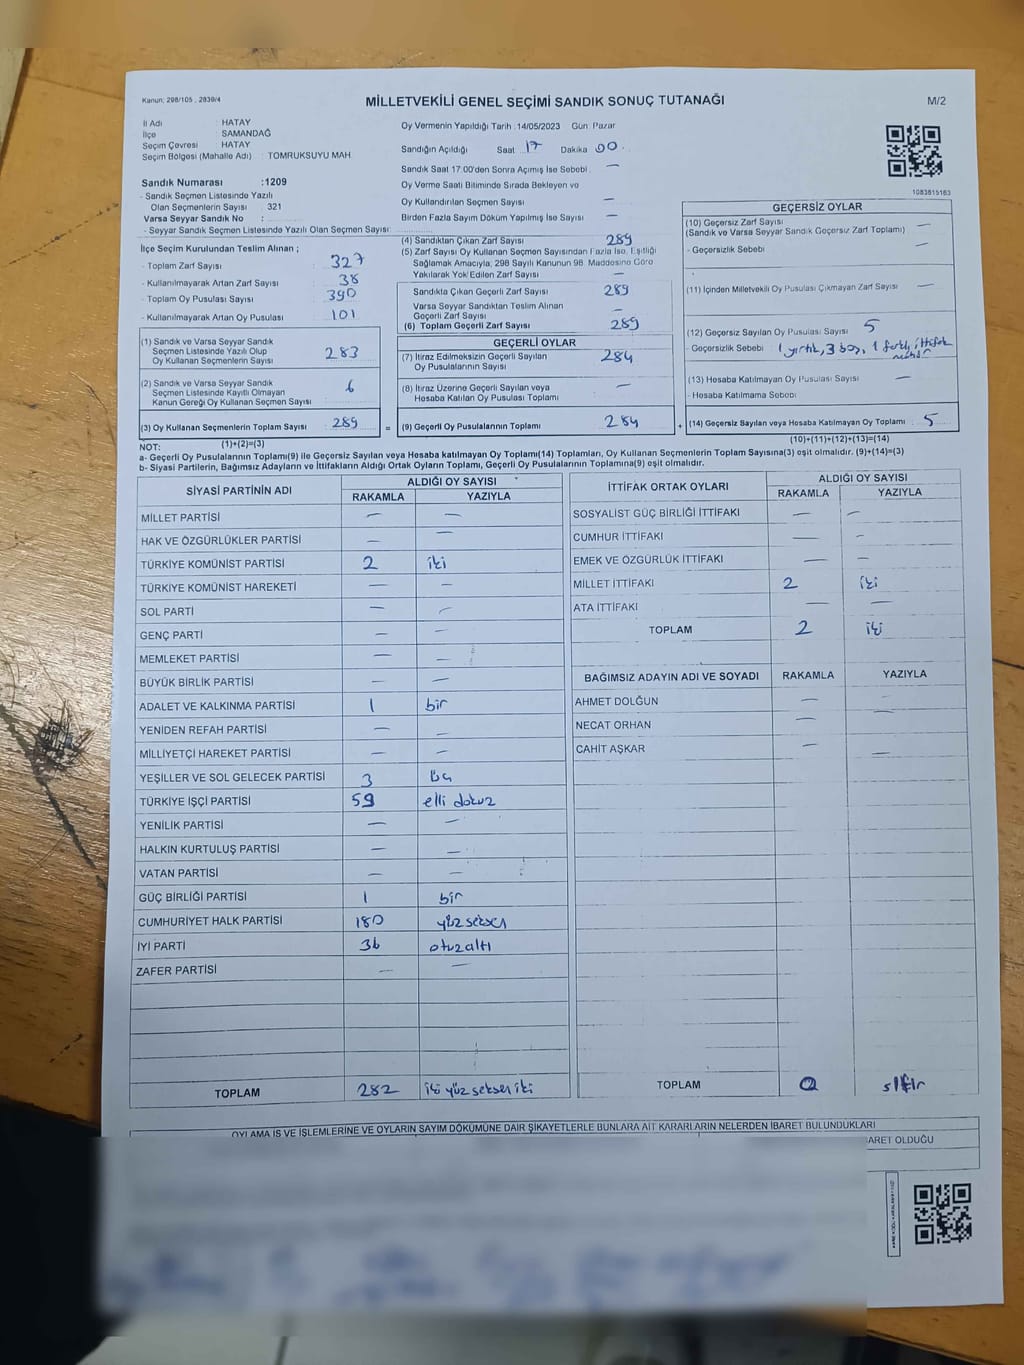 Kanun: 298/105 , 2839/4
MİLLETVEKİLİ GENEL SEÇİMİ SANDIK SONUÇ TUTANAĞI
M/2
İl Adı : HATAY
İlçe : SAMANDAĞ
Seçim Çevresi : HATAY
Seçim Bölgesi (Mahalle Adı) : TOMRUKSUYU MAH.
Oy Vermenin Yapıldığı Tarih :14/05/2023 Gün Pazar
Sandığın Açıldığı Saat 17 Dakika 00
Sandık Saat 17:00'den Sonra Açımış İse Sebebi : —
Oy Verme Saati Bitiminde Sırada Bekleyen ve
Oy Kullandırılan Seçmen Sayısı —
Birden Fazla Sayım Döküm Yapılmış İse Sayısı —
1083815163
Sandık Numarası :1209
- Sandık Seçmen Listesinde Yazılı
Olan Seçmenlerin Sayısı : 321
Varsa Seyyar Sandık No :
- Seyyar Sandık Seçmen Listesinde Yazılı Olan Seçmen Sayısı:
İlçe Seçim Kurulundan Teslim Alınan ;
- Toplam Zarf Sayısı : 327
- Kullanılmayarak Artan Zarf Sayısı : 38
- Toplam Oy Pusulası Sayısı : 390
- Kullanılmayarak Artan Oy Pusulası : 101
(1) Sandık ve Varsa Seyyar Sandık
Seçmen Listesinde Yazılı Olup
Oy Kullanan Seçmenlerin Sayısı : 283
(2) Sandık ve Varsa Seyyar Sandık
Seçmen Listesinde Kayıtlı Olmayan
Kanun Gereği Oy Kullanan Seçmen Sayısı : 6
(3) Oy Kullanan Seçmenlerin Toplam Sayısı : 289
(4) Sandıktan Çıkan Zarf Sayısı 289
(5) Zarf Sayısı Oy Kullanan Seçmen Sayısından Fazla İse, Eşitliği
Sağlamak Amacıyla, 298 Sayılı Kanunun 98. Maddesine Göre
Yakılarak Yok Edilen Zarf Sayısı —
Sandıkta Çıkan Geçerli Zarf Sayısı 289
Varsa Seyyar Sandıktan Teslim Alınan
Geçerli Zarf Sayısı —
(6) Toplam Geçerli Zarf Sayısı 289
GEÇERLİ OYLAR
(7) İtiraz Edilmeksizin Geçerli Sayılan
Oy Pusulalarının Sayısı 284
(8) İtiraz Üzerine Geçerli Sayılan veya
Hesaba Katılan Oy Pusulası Toplamı —
= (9) Geçerli Oy Pusulalarının Toplamı 284
GEÇERSİZ OYLAR
(10) Geçersiz Zarf Sayısı —
(Sandık ve Varsa Seyyar Sandık Geçersiz Zarf Toplamı)
- Geçersizlik Sebebi —
(11) İçinden Milletvekili Oy Pusulası Çıkmayan Zarf Sayısı —
(12) Geçersiz Sayılan Oy Pusulası Sayısı 5
- Geçersizlik Sebebi 1 yırtık, 3 boş, 1 farklı ittifak
(13) Hesaba Katılmayan Oy Pusulası Sayısı —
- Hesaba Katılmama Sebebi
+ (14) Geçersiz Sayılan veya Hesaba Katılmayan Oy Toplamı : 5
NOT: (1)+(2)=(3) (10)+(11)+(12)+(13)=(14)
a- Geçerli Oy Pusulalarının Toplamı(9) ile Geçersiz Sayılan veya Hesaba katılmayan Oy Toplamı(14) Toplamları, Oy Kullanan Seçmenlerin Toplam Sayısına(3) eşit olmalıdır. (9)+(14)=(3)
b- Siyasi Partilerin, Bağımsız Adayların ve İttifakların Aldığı Ortak Oyların Toplamı, Geçerli Oy Pusulalarının Toplamına(9) eşit olmalıdır.
SİYASİ PARTİNİN ADI ALDIĞI OY SAYISI
RAKAMLA YAZIYLA
MİLLET PARTİSİ — —
HAK VE ÖZGÜRLÜKLER PARTİSİ — —
TÜRKİYE KOMÜNİST PARTİSİ 2 iki
TÜRKİYE KOMÜNİST HAREKETİ — —
SOL PARTİ — —
GENÇ PARTİ — —
MEMLEKET PARTİSİ — —
BÜYÜK BİRLİK PARTİSİ — —
ADALET VE KALKINMA PARTİSİ 1 bir
YENİDEN REFAH PARTİSİ — —
MİLLİYETÇİ HAREKET PARTİSİ — —
YEŞİLLER VE SOL GELECEK PARTİSİ 3 üç
TÜRKİYE İŞÇİ PARTİSİ 59 elli dokuz
YENİLİK PARTİSİ — —
HALKIN KURTULUŞ PARTİSİ — —
VATAN PARTİSİ — —
GÜÇ BİRLİĞİ PARTİSİ 1 bir
CUMHURİYET HALK PARTİSİ 180 yüz seksen
İYİ PARTİ 36 otuzaltı
ZAFER PARTİSİ — —
TOPLAM 282 iki yüz seksen iki
İTTİFAK ORTAK OYLARI ALDIĞI OY SAYISI
RAKAMLA YAZIYLA
SOSYALİST GÜÇ BİRLİĞİ İTTİFAKI — —
CUMHUR İTTİFAKI — —
EMEK VE ÖZGÜRLÜK İTTİFAKI — —
MİLLET İTTİFAKI 2 iki
ATA İTTİFAKI — —
TOPLAM 2 iki
BAĞIMSIZ ADAYIN ADI VE SOYADI RAKAMLA YAZIYLA
AHMET DOLĞUN — —
NECAT ORHAN — —
CAHİT AŞKAR — —
TOPLAM 0 sıfır
OYLAMA İŞ VE İŞLEMLERİNE VE OYLARIN SAYIM DÖKÜMÜNE DAİR ŞİKAYETLERLE BUNLARA AİT KARARLARIN NELERDEN İBARET BULUNDUKLARI
BARET OLDUĞU